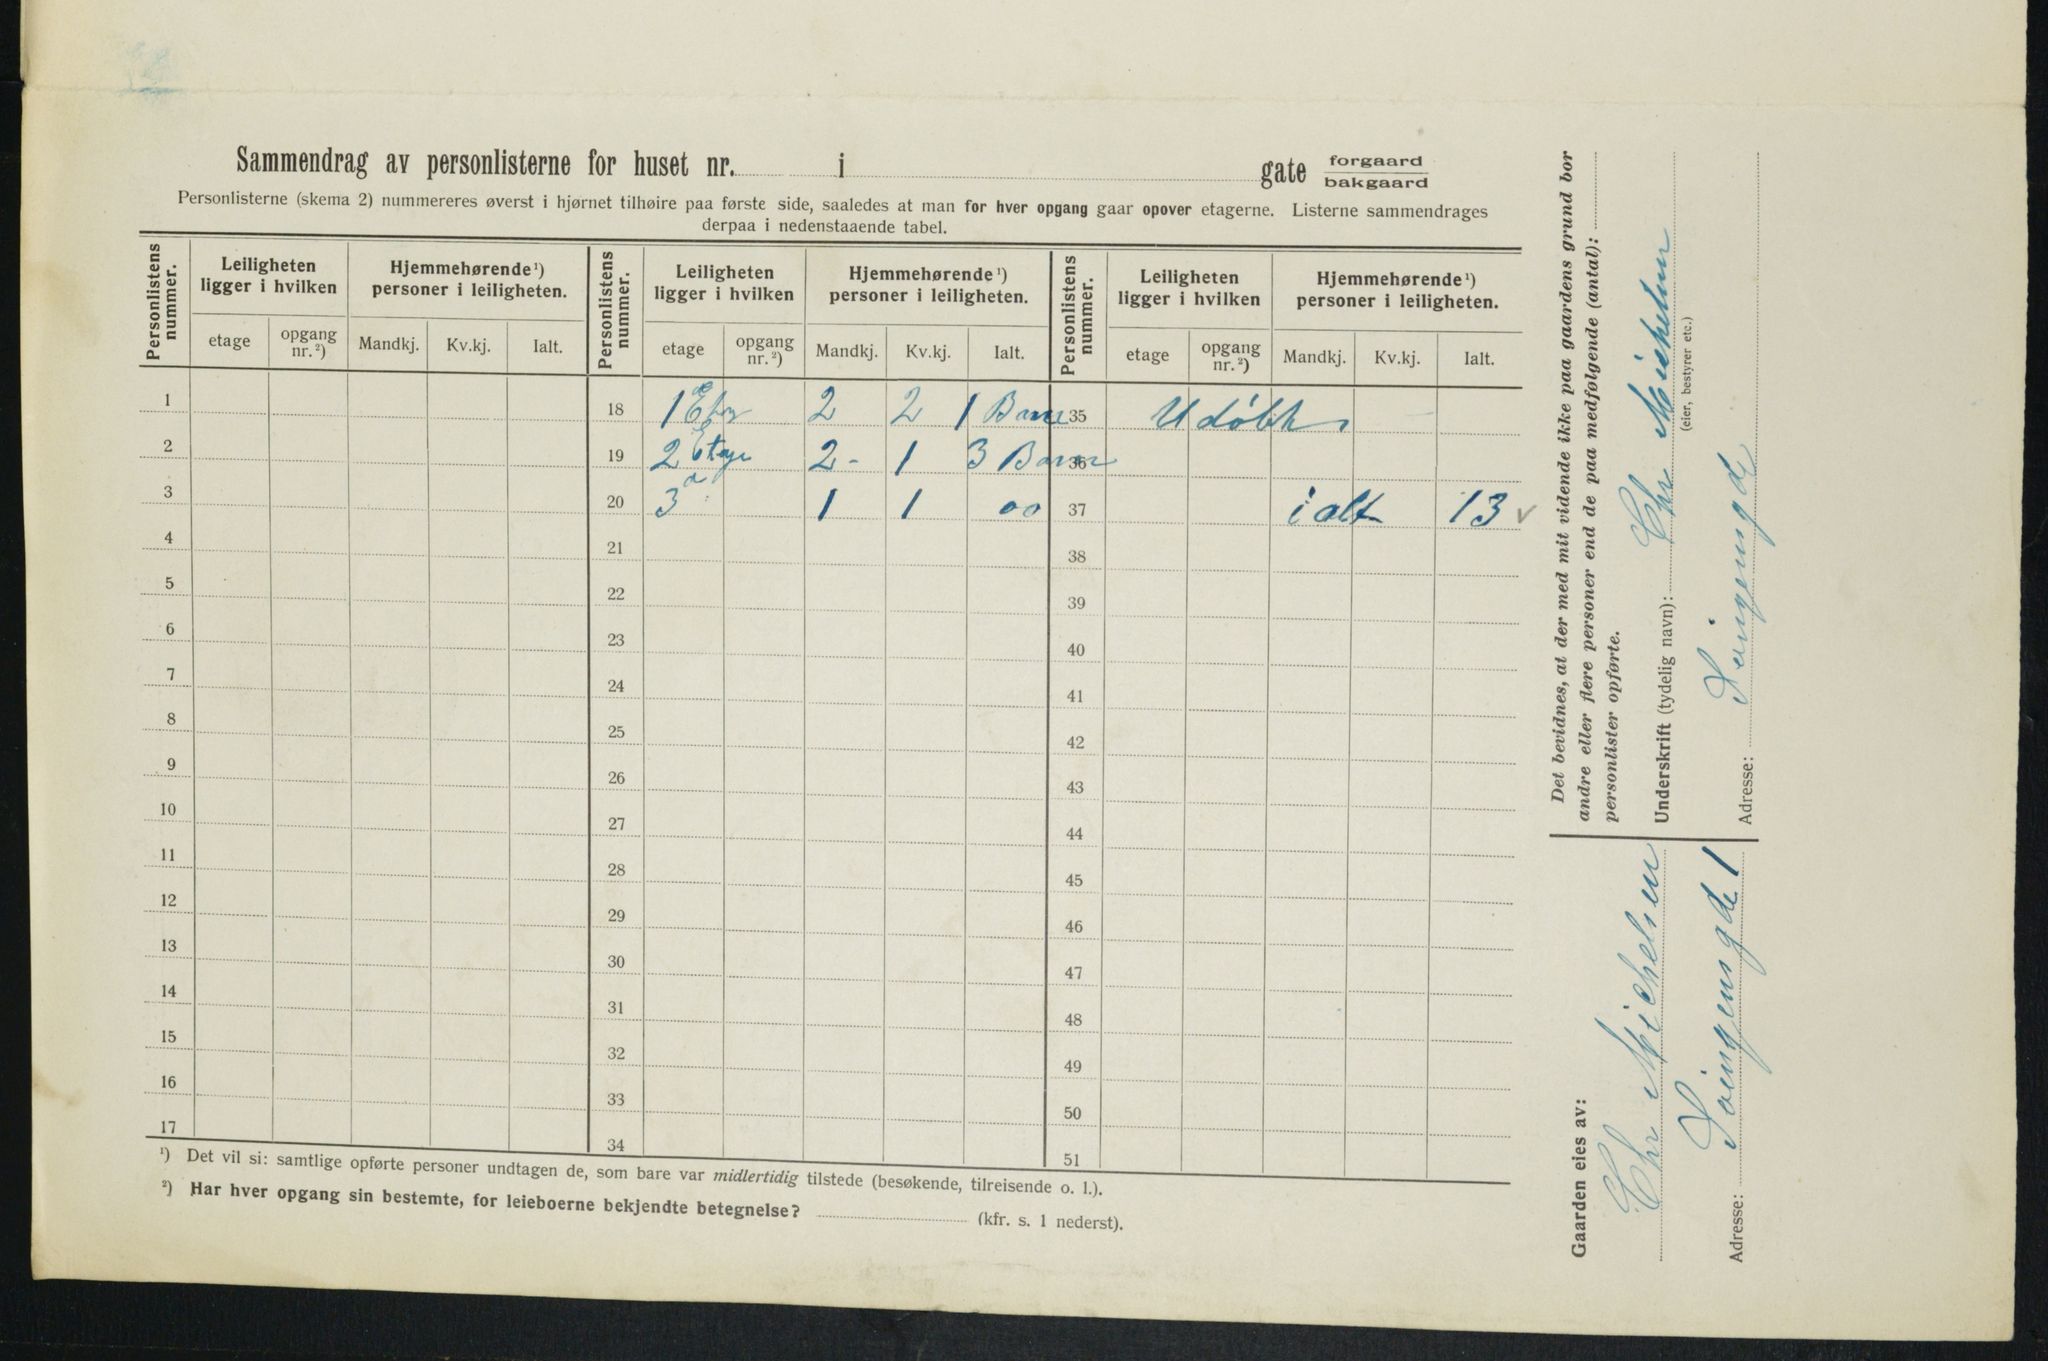 Sammendrag av personlisterne for huset nr. i gate forgaard bakgaard
Personlisterne (skema 2) nummereres øverst i hjørnet tilhøire paa første side, saaledes at man for hver opgang gaar opover etagerne. Listerne sammendrages
derpaa i nedenstaaende tabel.
Personlistens nummer. Leiligheten ligger i hvilken Hjemmehørende ¹) personer i leiligheten. Personlistens nummer. Leiligheten ligger i hvilken Hjemmehørende ¹) personer i leiligheten. Personlistens nummer. Leiligheten ligger i hvilken Hjemmehørende ¹) personer i leiligheten.
etage opgang nr. ²) Mandkj. Kv.kj. Ialt. etage opgang nr. ²) Mandkj. Kv.kj. Ialt. etage opgang nr. ²) Mandkj. Kv.kj. Ialt.
1 18 1 2 2 1 35
2 19 2 Etage 2 - 1 3 Barn 36
3 20 3 1 1 00 37 i alt 13
4 21 38
5 22 39
6 23 40
7 24 41
8 25 42
9 26 43
10 27 44
11 28 45
12 29 46
13 30 47
14 31 48
15 32 49
16 33 50
17 34 51
¹) Det vil si: samtlige opførte personer undtagen de, som bare var midlertidig tilstede (besøkende, tilreisende o. l.).
²) Har hver opgang sin bestemte, for leieboerne bekjendte betegnelse? (kfr. s. 1 nederst).
Det bevidnes, at der med mit vidende ikke paa gaardens grund bor
andre eller flere personer end de paa medfølgende (antal):
personlister opførte.
Underskrift (tydelig navn): Chr Michelsen
(eier, bestyrer etc.)
Adresse:
Gaarden eies av:
Chr Michelsen
Adresse: 1